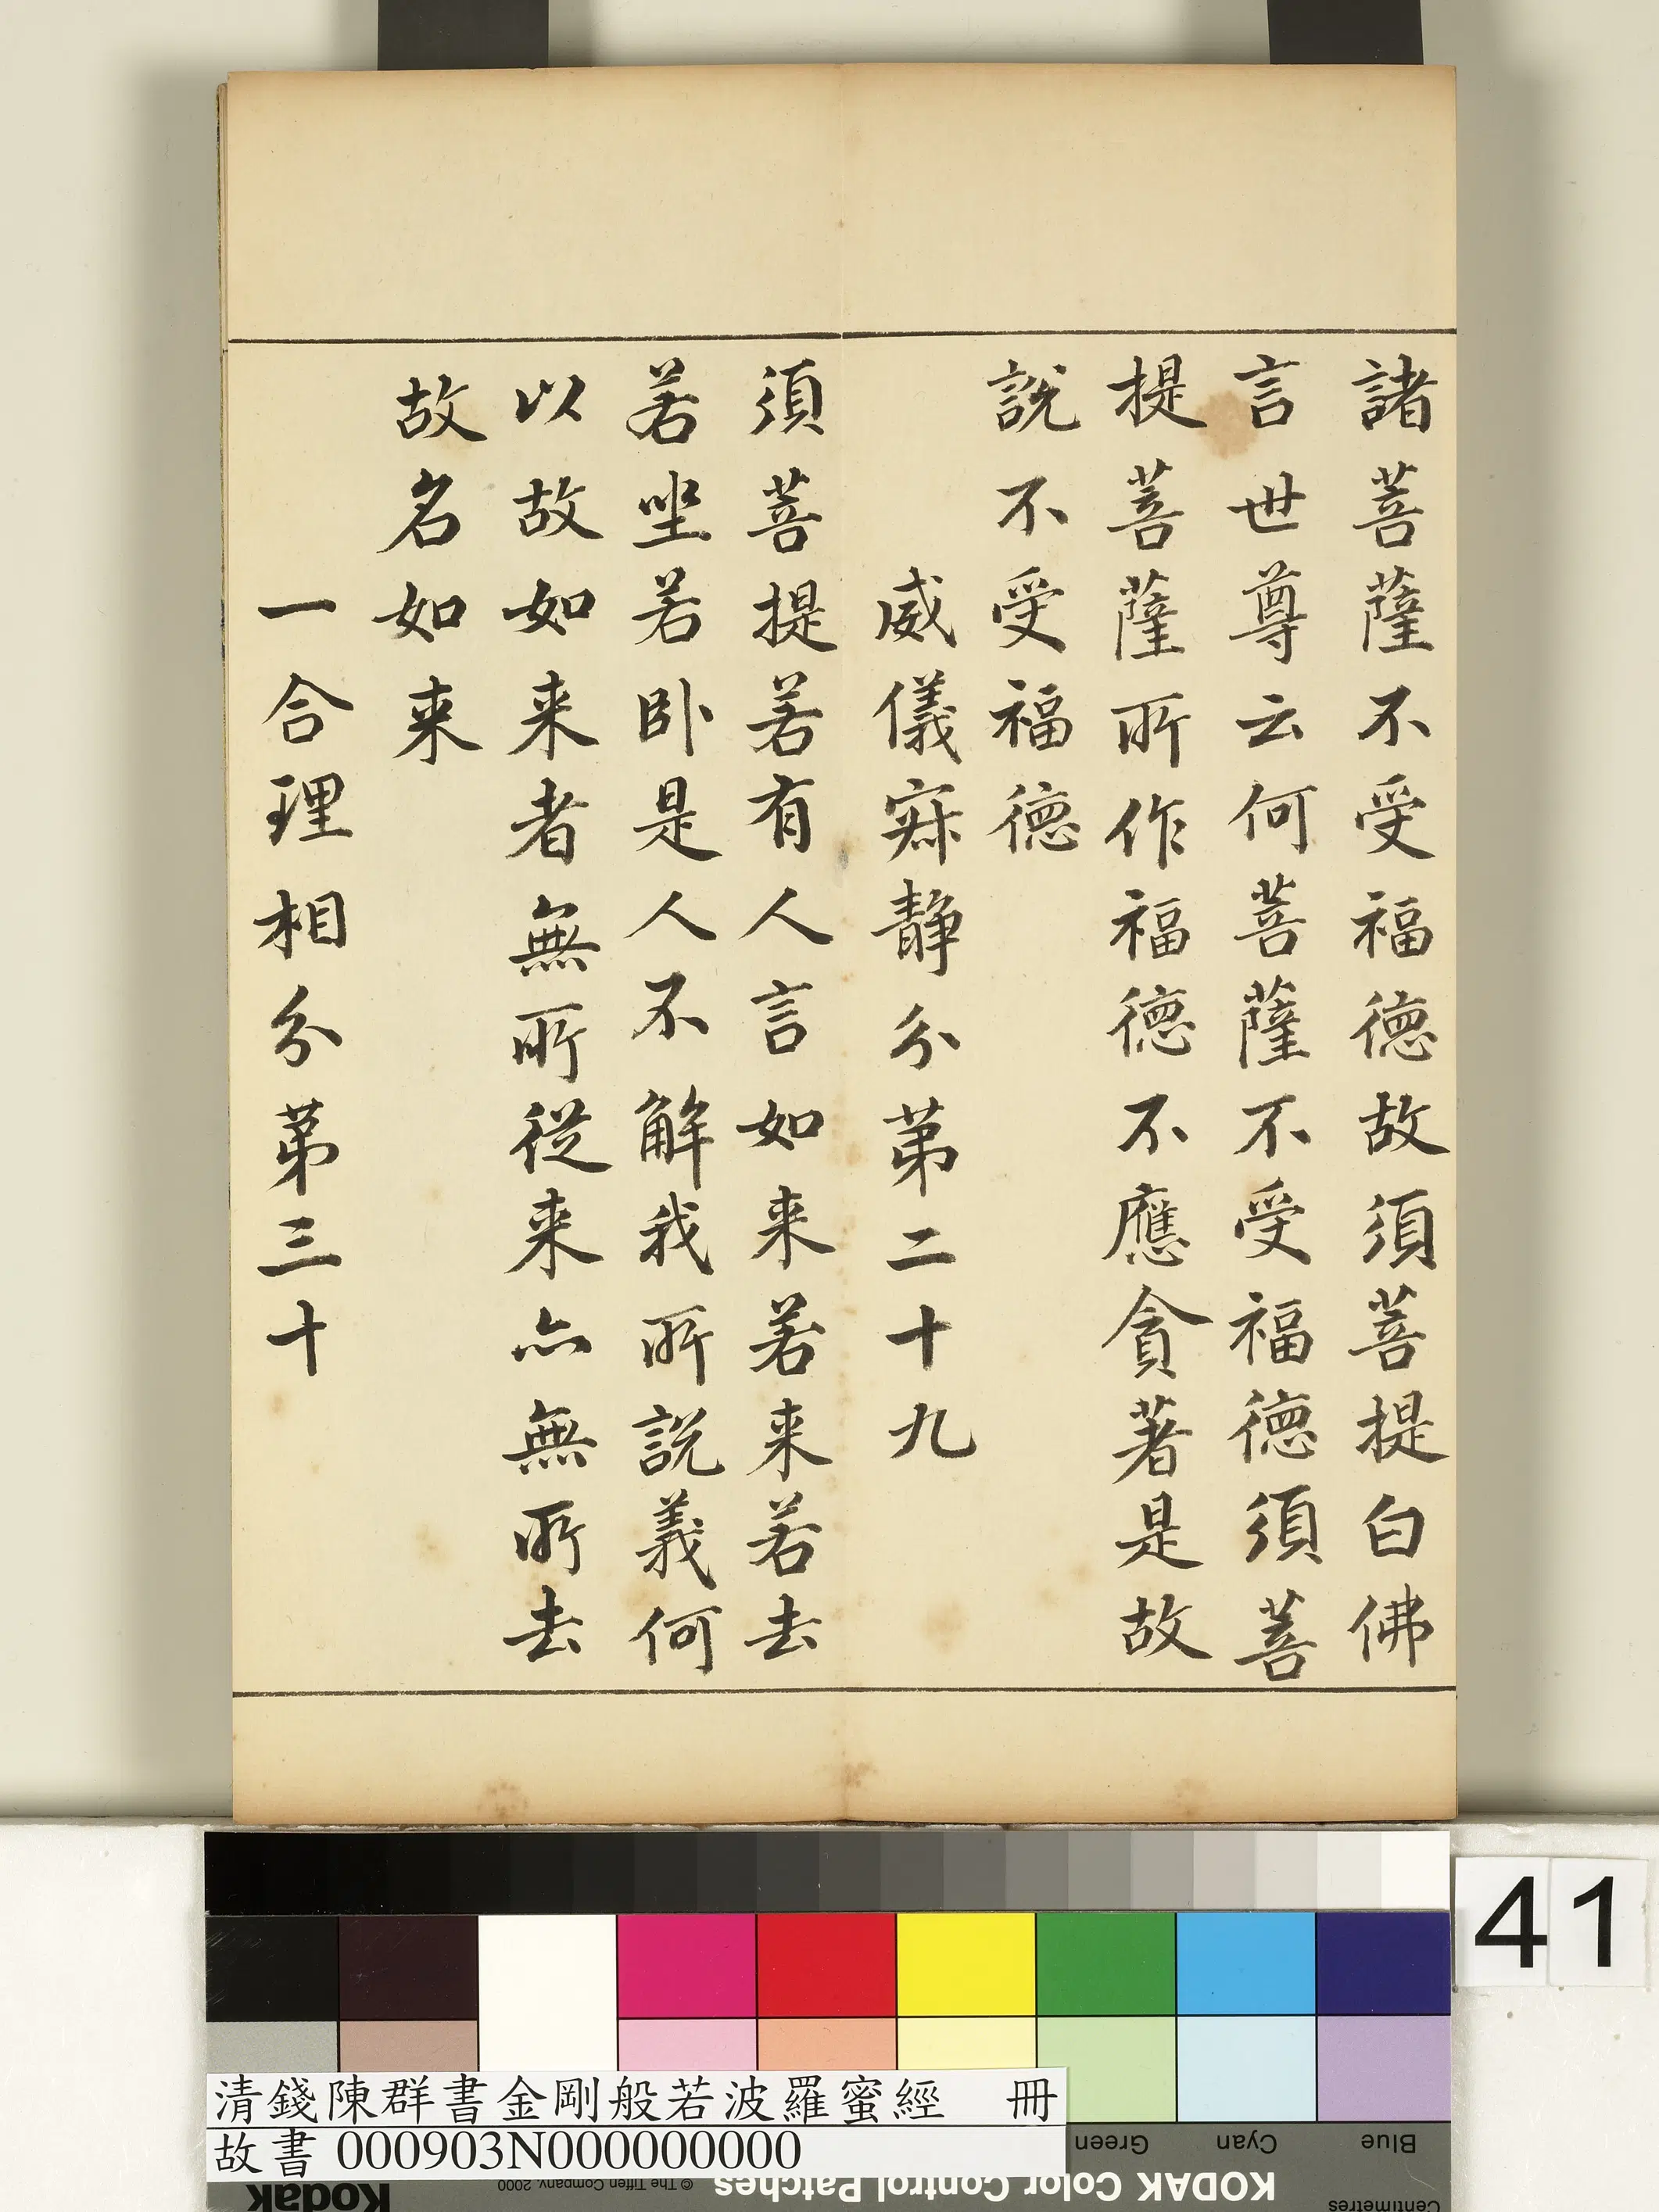 諸菩薩不受福德故須菩提白佛
言世尊云何菩薩不受福德須菩
提菩薩所作福德不應貪著是故
說不受福德
威儀寂静分第二十九
須菩提若有人言如来若来若去
若坐若卧是人不解我所說義何
以故如来者無所從来亦無所去
故名如来
一合理相分第三十
41
清錢陳群書金剛般若波羅蜜經 冊
故書 000903N000000000
Green Cyan Blue
KODAK Color Control Patches
© The Tiffen Company, 2000
Kodak
Centimetres